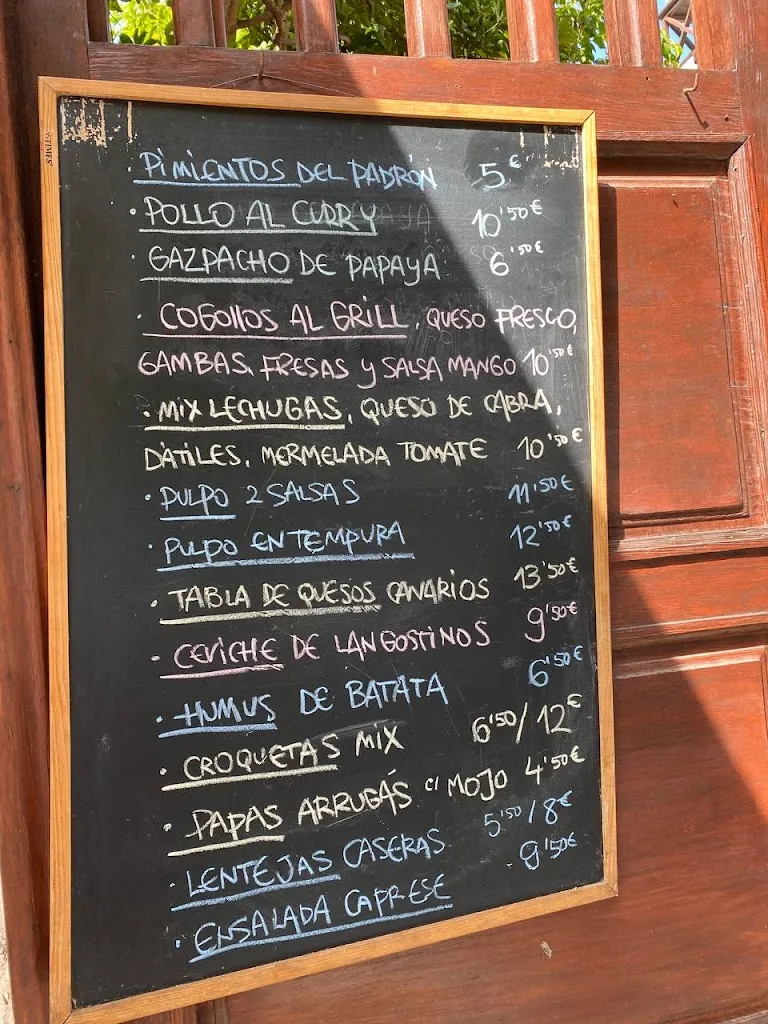 · PIMIENTOS DEL PADRÓN 5€
· POLLO AL CURRY 10'50€
· GAZPACHO DE PAPAYA 6'50€
· COGOLLOS AL GRILL, QUESO FRESCO,
GAMBAS, FRESAS Y SALSA MANGO 10'50€
· MIX LECHUGAS, QUESO DE CABRA,
DATILES, MERMELADA TOMATE 10'50€
· PULPO 2 SALSAS 11'50€
· PULPO EN TEMPURA 12'50€
· TABLA DE QUESOS CANARIOS 13'50€
- CEVICHE DE LANGOSTINOS 9'50€
· HUMUS DE BATATA 6'50€
· CROQUETAS MIX 6'50/12€
· PAPAS ARRUGÁS C/ MOJO 4'50€
· LENTEJAS CASERAS 5'50/8€
· ENSALADA CAPRESE 9'50€